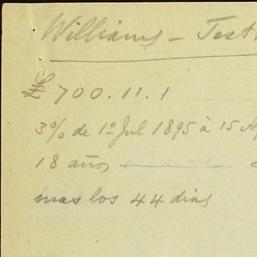 Williams - Test
£ 700.11.1
3% de 1º Jul 1895 à 15
18 años
mas los 44 dias